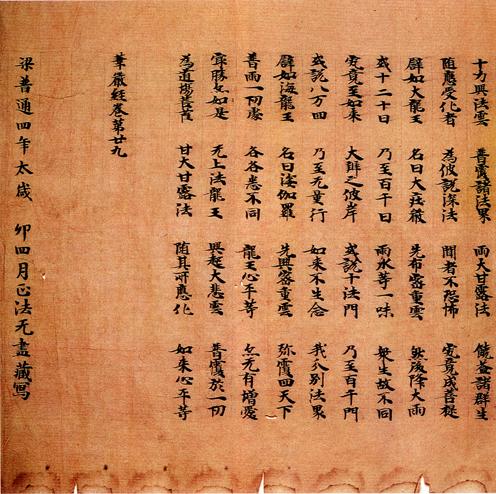 十力興法雲　普覆諸法界　雨大甘露法　饒益諸群生
随應受化者　為彼說深法　聞者不恐怖　究竟成菩提
辟如大龍王　名曰大莊嚴　先布密重雲　然後降大雨
或十二十日　乃至百千日　雨水等一味　衆生故不同
究竟至如来　大辯之彼岸　或說十法門　乃至百千門
或說八万四　乃至无量行　如来不生念　我分別法界
辟如海龍王　名曰娑伽羅　先興密重雲　弥覆四天下
普雨一切處　各各悉不同　龍王心平等　亦无有增愛
㝡勝亦如是　无上法龍王　興起大悲雲　普覆於一切
為道場菩薩　甘大甘露法　随其所應化　如来心平等
華嚴經卷第廿九
梁普通四年太歳　卯四月正法无盡藏寫